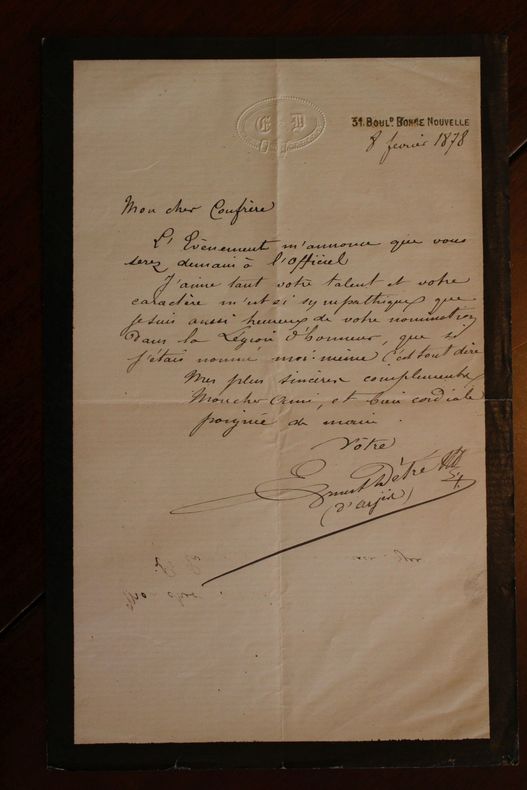 E D
31. BOUL.D BONNE NOUVELLE
8 fevrier 1878
Mon cher Confrère
L'Evènement m'annonce que vous
serez demain à l'Officiel
J'aime tant votre talent et votre
caractère m'est si sympathique que
je suis aussi heureux de votre nomination
Dans la Légion d'honneur, que si
j'étais nommé moi-même c'est tout dire
Mes plus sincères compliments
Mon cher Ami, et bien cordiale
poignée de main.
Vôtre
Ernest D'